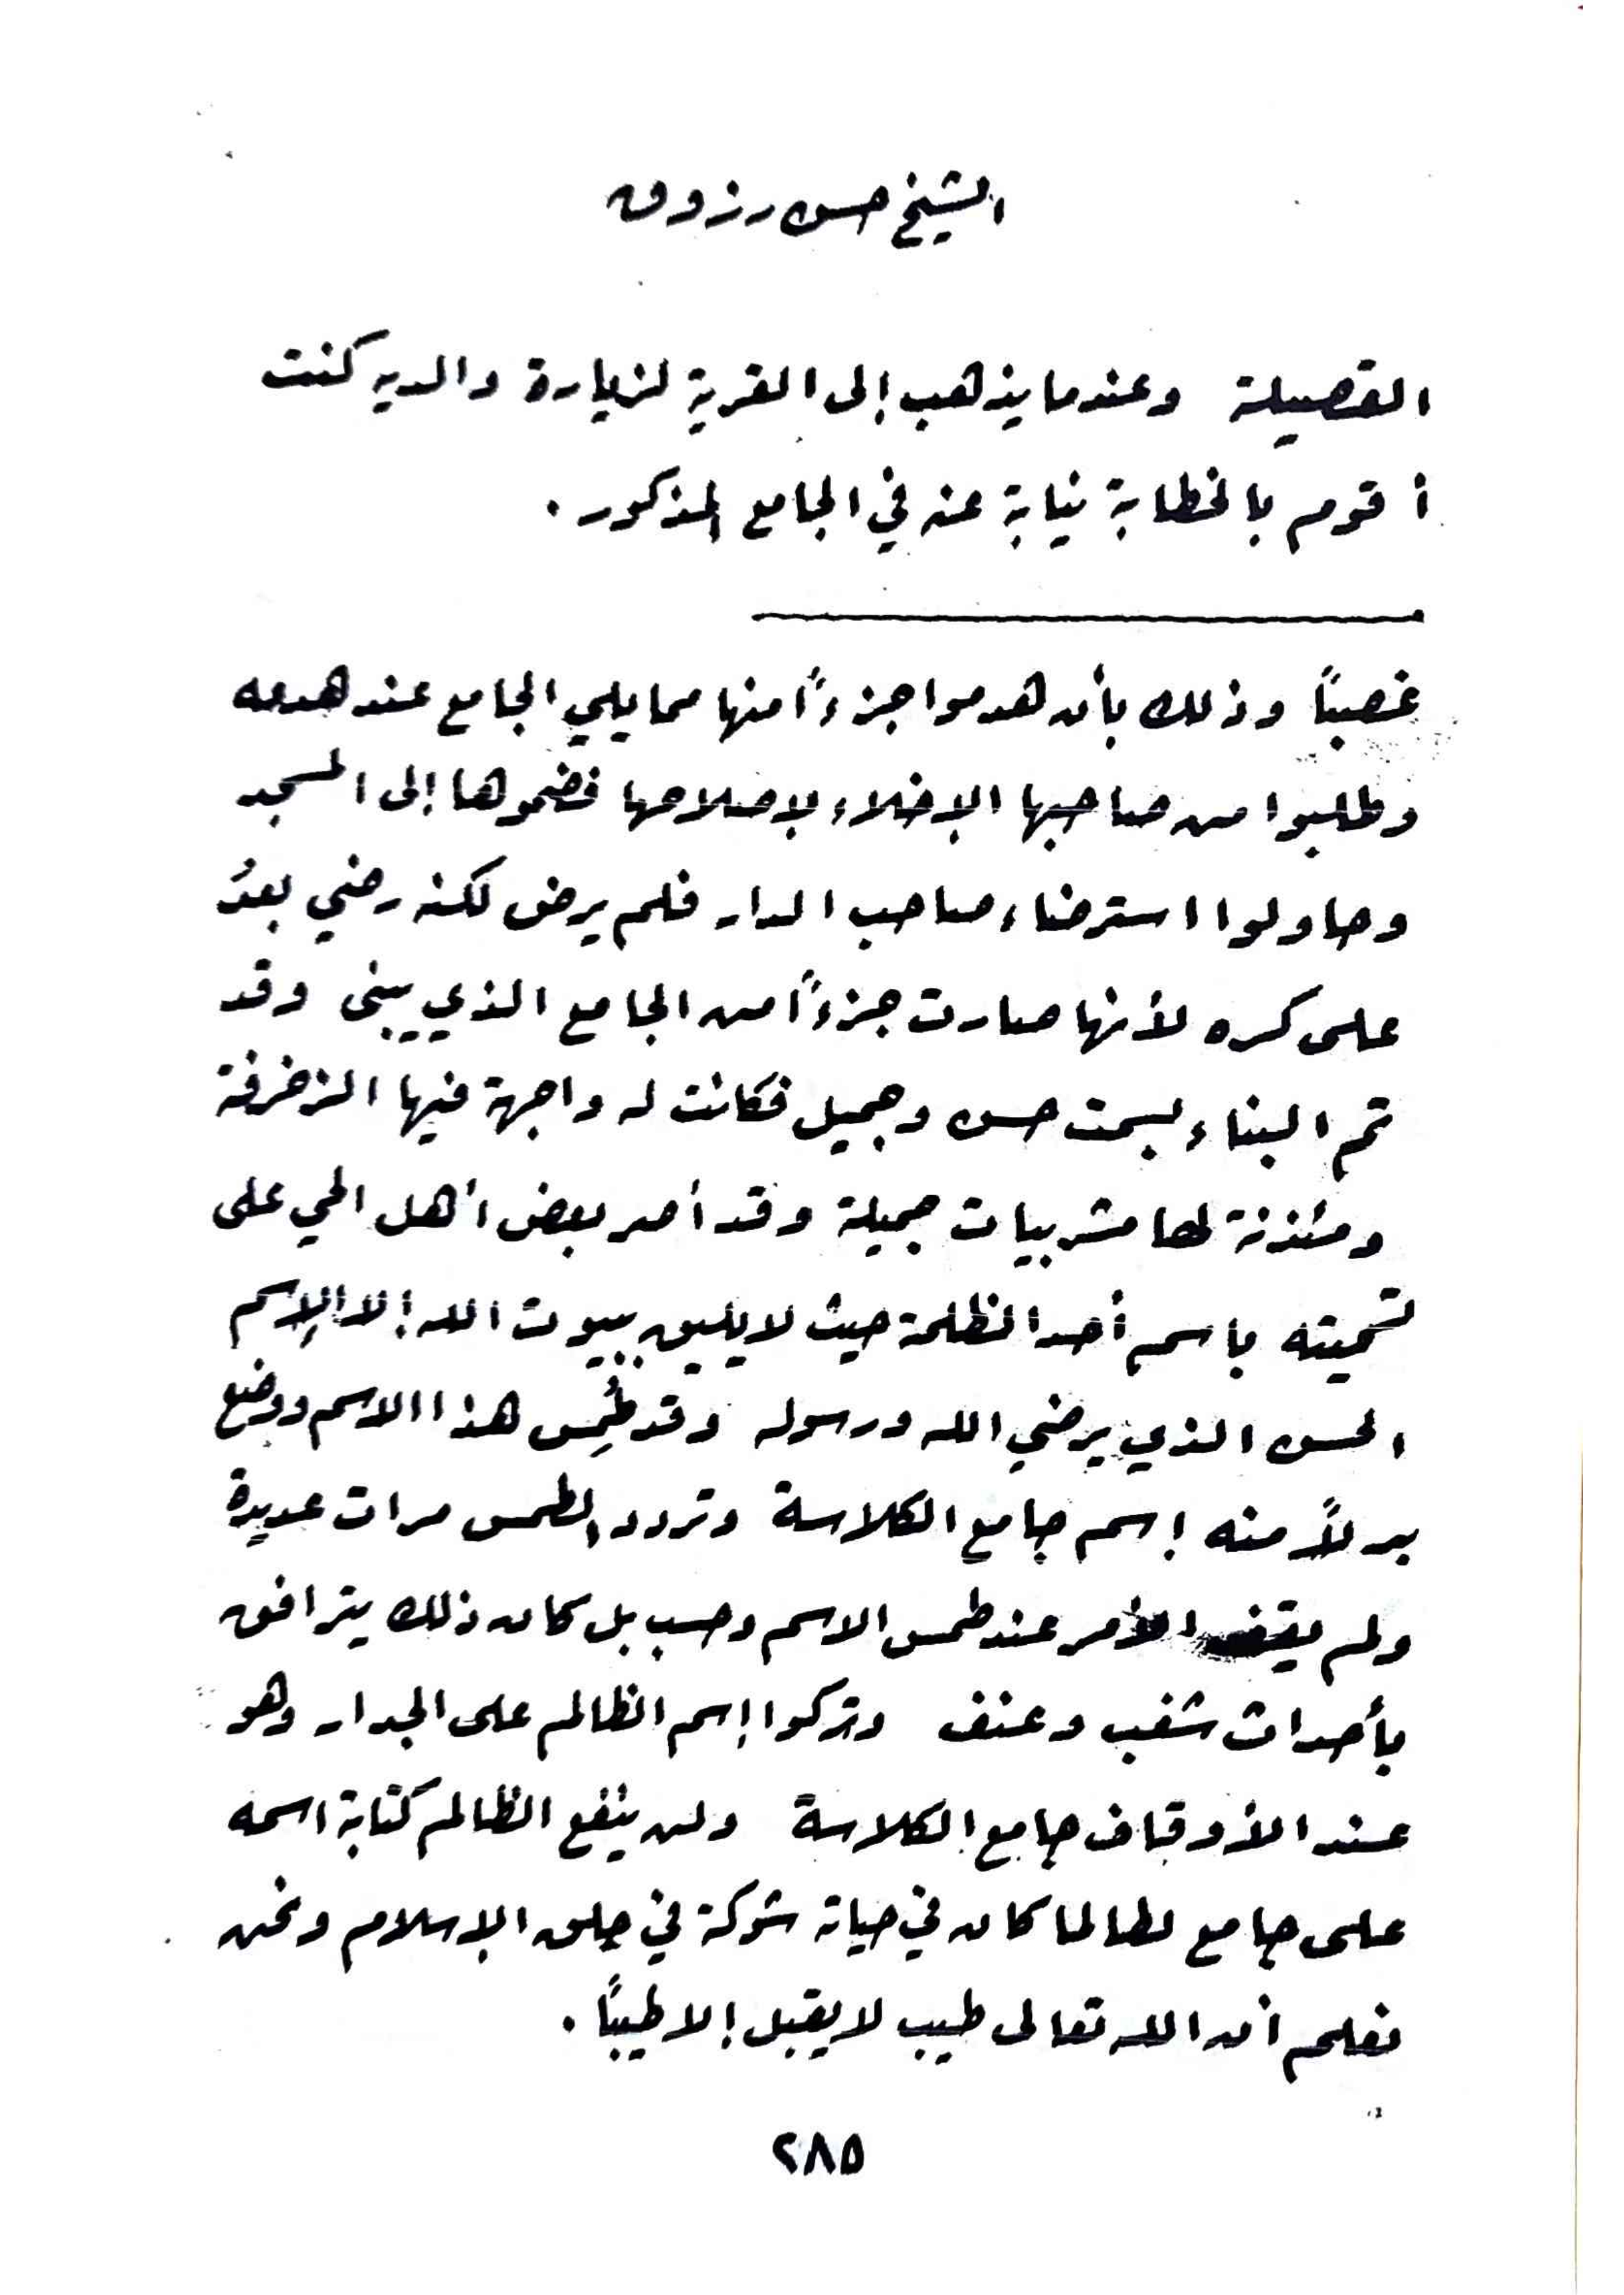 الشيخ حسن رزوق
القصيلة وعندما يذهب إلى القرية لزيارة والديه كنت
أقوم بالخطابة نيابة عنه في الجامع المذكور .
غصباً وذلك بأن هدموا جزءاً منها مما يلي الجامع عند هدمه
وطلبوا من صاحبها الإخلاء لإصلاحها فضموها إلى المسجد
وحاولوا استرضاء صاحب الدار فلم يرض لكنه رضي بعدُ
على كره لأنها صارت جزءاً من الجامع الذي يبنى وقد
تم البناء بسمت حسن وجميل فكانت له واجهة فيها الزخرفة
ومئذنة لها مشربيات جميلة وقد أصر بعض أهل الحي على
تسميته باسم أحد الظلمة حيث لا يليق ببيوت الله إلا الإسم
الحسن الذي يرضي الله ورسوله وقد طُمِس هذا الاسم ووضع
بدلاً منه إسم جامع الكلاسة وتردد الطمس مرات عديدة
ولم يقف الأمر عند طمس الاسم وحسب بل كان ذلك يترافق
بأحداث شغب وعنف وتركوا إسم الظالم على الجدار وهو
عند الأوقاف جامع الكلاسة ولن ينفع الظالم كتابة اسمه
على جامع لطالما كان في حياته شوكة في حلق الإسلام ونحن
نعلم أن الله تعالى طيب لا يقبل إلا طيباً .
٢٨٥